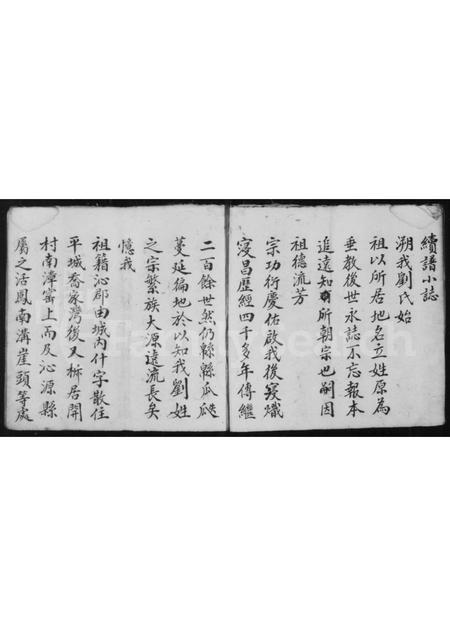 續譜小誌
溯我劉氏始
祖以所居地名立姓原為
垂教後世永誌不忘報本
追遠知有所朝宗也嗣因
祖德流芳
宗功衍慶佑啟我後寖熾
寖昌歷經四千多年傳繼
二百餘世然仍緜緜瓜瓞
蔓延徧地於以知我劉姓
之宗繁族大源遠流長矣
憶我
祖籍沁郡由城內什字散住
平城喬家灣後又柳居開
村南漳甯上而及沁源縣
屬之活鳳南溝崖頭等處
FamilySearch